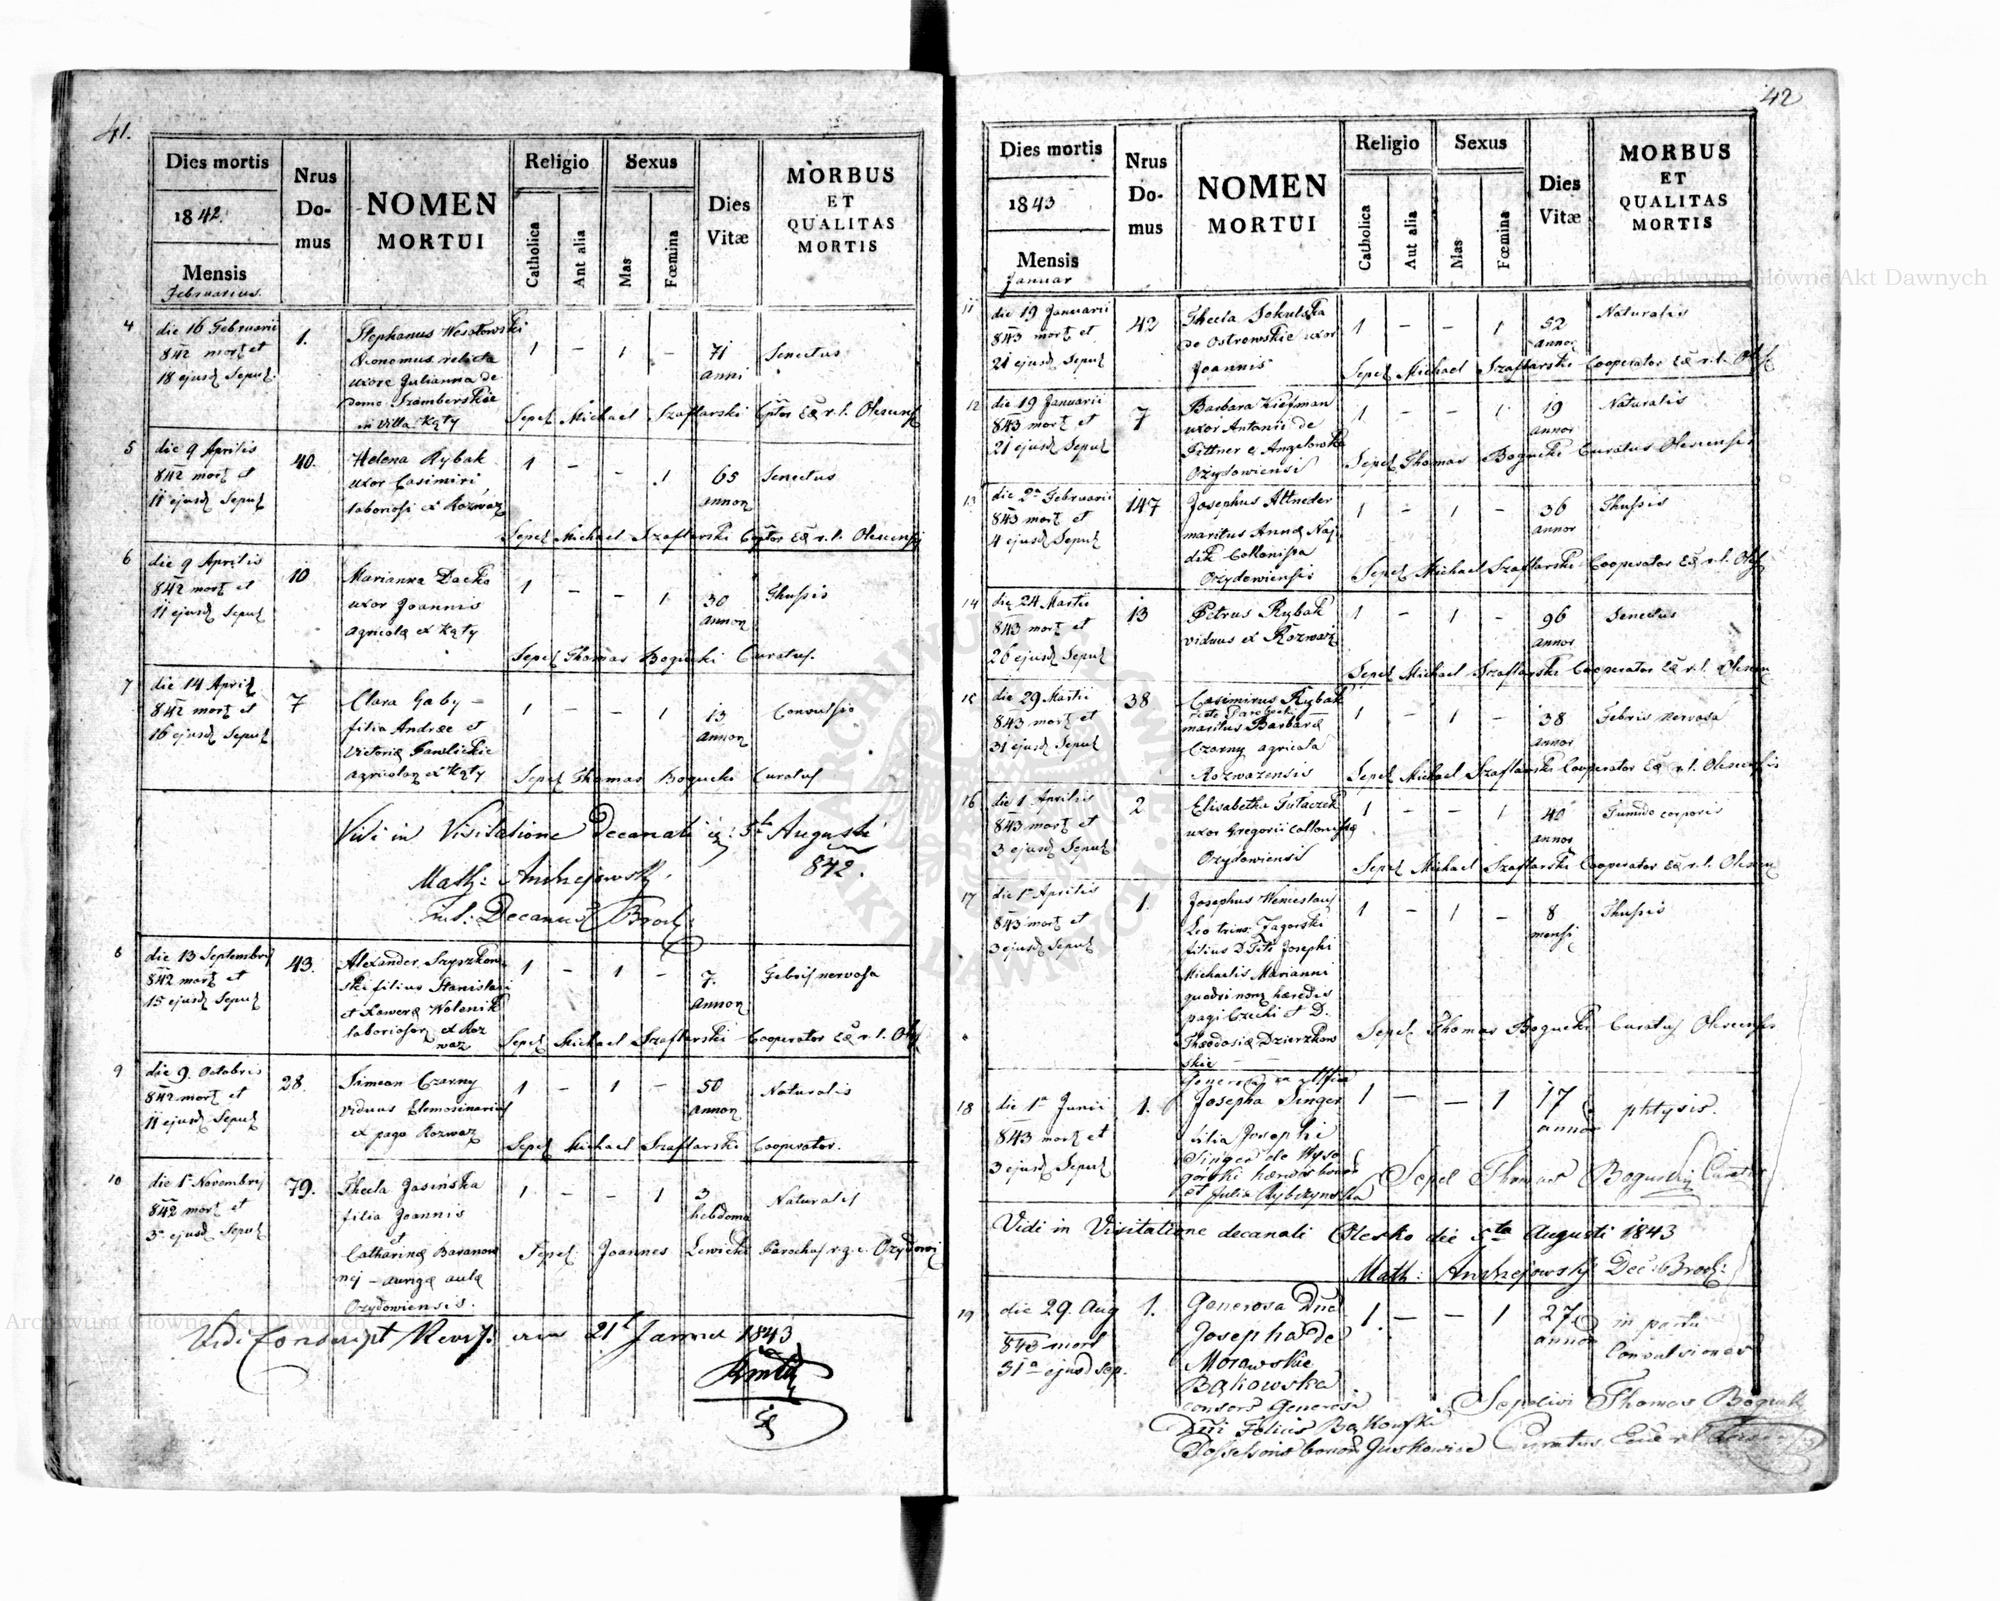 41.
Dies mortis
1842.
Mensis
Februarius.
Nrus
Do-
mus
NOMEN
MORTUI
Religio
Catholica
Aut alia
Sexus
Mas
Fœmina
Dies
Vitæ
MORBUS
ET
QUALITAS
MORTIS
4
die 16 Februarii
842 mort et
18 ejusd Sepul
1.
Stephanus Wesołowski
Œconomus relicta
uxore Julianna de
domo Szamberskie
in villa Kąty
1 – 1 –
71
anni
Senectus
Sepel Michael Szaflarski Cptor Eæ r. l. Olescens
5
die 9 Aprilis
842 mort et
11 ejusd Sepul
40.
Helena Rybak
uxor Casimiri
laboriosi ex Rozwaz
1 – – 1
65
annor
Senectus
Sepel Michael Szaflarski Cptor Eæ r. l. Olescensis
6
die 9 Aprilis
842 mort et
11 ejusd Sepul
10
Marianna Dacko
uxor Joannis
agricolæ ex Kąty
1 – – 1
30
annor
Thussis
Sepel Thomas Bogucki Curatus.
7
die 14 April
842 mort et
16 ejusd Sepul
7
Clara Gaby –
filia Andræ et
Victoriæ Pawlickie
agricolar ex Kąty
1 – – 1
13
annor
Convulsio
Sepel Thomas Bogucki Curatus
Vidi in Visitatione Decanali 5ta Augusti
842.
Math: Andrzejowski
Decanus Brod:
8
die 13 Septembris
842 mort et
15 ejusd Sepul
43.
Alexander Szyszkow
ski filius Stanislai
et Xaweræ Wolenik
laboriosor ex Roz
waz
1 – 1 –
7.
annor
Febris nervosa
Sepel Michael Szaflarski Cooperator Eæ r. l. Oles
9
die 9. Octobris
842 mort et
11 ejusd Sepul
28.
Simeon Czarny
viduus Elemosinarius
ex pago Rozwaz
1 – 1 –
50
annor
Naturalis
Sepel Michael Szaflarski Cooperator.
10
die 1 Novembris
842 mort et
3 ejusd Sepul
79.
Thecla Jasińska
filia Joannis
et
Catharinæ Baranow
nej – aurigæ aulæ
Ozydowiensis.
1 – – 1
3
hebdoma
Naturalis
Sepel: Joannes Lewicki Parochus r. g. c. Ozydowi
Vidi Conscript Revis: 21 Januar 1843
42
Dies mortis
1843
Mensis
Januar
Nrus
Do-
mus
NOMEN
MORTUI
Religio
Catholica
Aut alia
Sexus
Mas
Fœmina
Dies
Vitæ
MORBUS
ET
QUALITAS
MORTIS
11
die 19 Januarii
843 mort et
21 ejusd Sepul
42
Thecla Sokulska
de Ostrowskie uxor
Joannis
1 – – 1
52
annor
Naturalis
Sepel Michael Szaflarski Cooperator Eæ r. l. Oles
12
die 19 Januarii
843 mort et
21 ejusd Sepul
7
Barbara Kiefman
uxor Antonii de
Pittner e Angelowka
Ozydowiensis
1 – – 1
19
annor
Naturalis
Sepel Thomas Bogucki Curatus Olescensis
13
die 2 Februarii
843 mort et
4 ejusd Sepul
147
Josephus Altneder
maritus Annæ Naj
dek Collonista
Ozydowiensis
1 – 1 –
36
annor
Thussis
Sepel Michael Szaflarski Cooperator Eæ r. l. Oles
14
die 24 Martii
843 mort et
26 ejusd Sepul
13
Petrus Rybak
viduus ex Rozwaz
1 – 1 –
96
annor
Senectus
Sepel Michael Szaflarski Cooperator Eæ r. l. Olescen
15
die 29 Martii
843 mort et
31 ejusd Sepul
38
Casimirus Rybak
maritus Barbaræ
Czarny agricola
Rozwazensis
1 – 1 –
38
annor
Febris nervosa
Sepel Michael Szaflarski Cooperator Eæ r. l. Olescensis
16
die 1 Aprilis
843 mort et
3 ejusd Sepul
2
Elisabetha Tułaczek
uxor Gregorii Collonistæ
Ozydowiensis
1 – – 1
40
annor
Tumido corporis
Sepel Michael Szaflarski Cooperator Eæ r. l. Olescen
17
die 1 Aprilis
843 mort et
3 ejusd Sepul
1.
Josephus Wenceslaus
Leo trium Jagorski
filius D. Titi Josephi
Michaelis Marianni
quadri nom hæredis
pagi Czechi et D.
Theodosiæ Dzierzkow
skie
1 – 1 –
8
mensi
Thussis
Sepel Thomas Bogucki Curatus Olescensis
18
die 1 Junii
843 mort et
3 ejusd Sepul
1.
Generosa
Josepha Singer
filia Josephi
Singer de Wyso
górski hæredis bonor
et Julia Rybczynska
1 – – 1
17
annor
phtysis.
Sepel Thomas Bogucki Curatus
Vidi in Visitatione decanali Olesko die 5ta Augusti 1843
Math: Andrzejowski Dec: Brod:
19
die 29. Aug
843 mort
31 ejusd sep.
1.
Generosa Dna
Josepha de
Morawskie
Bąkowska
consors Generosi
Dni Felicis Bąkowski
Possessoris bonor Juskowice
1. – – 1
27
annor
in partu
Convulsiones
Sepelivi Thomas Bogucki
Curatus
Archiwum Główne Akt Dawnych
Archiwum Główne Akt Dawnych
ARCHIWUM GŁÓWNE AKT DAWNYCH